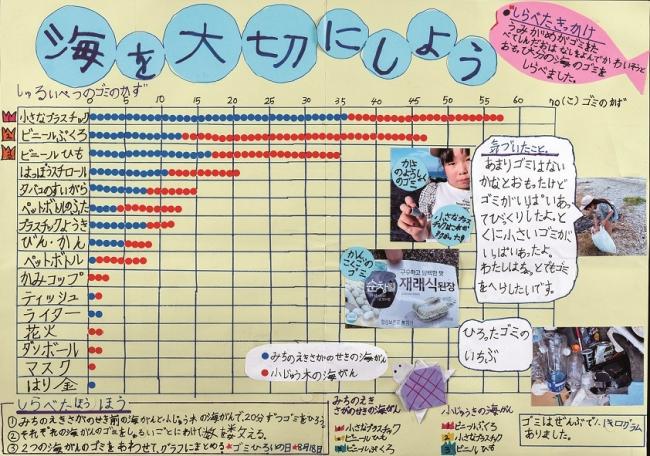 海を大切にしよう
しらべたきっかけ
うみがめがゴミをた
べてしんだおはなしをよんでかわいそうと
おもった。
海のゴミを
しらべました。
しゅるいべつのゴミのかず
0 5 10 15 20 25 30 35 40 45 50 55 60 70 (こ) ゴミのかず
小さなプラスチック
ビニールぶくろ
ビニールひも
はっぽうスチロール
タバコのすいがら
ペットボトルのふた
プラスチックようき
びん・かん
ペットボトル
かみコップ
ティッシュ
ライター
花火
ダンボール
マスク
はり金
かみ
のような
のゴミ
小さなプラ
スチック
かんこ
くごの
ゴミ
구수하고 담백한 맛
순창
재래식된장
気づいたこと。
あまりゴミはない
かなとおもったけど
ゴミがいっぱいあっ
てびっくりしたよ。と
くに小さいゴミが
いっぱいあったよ。
わたしはなっとでもゴミ
をへらしたいです。
ひろったゴミの
いちぶ
みちのえきさがのせきの海がん
小じゅう木の海がん
しらべたほうほう
①みちのえきさがのせき前の海がんと小じゅう木の海がんで、20分ずつゴミをひろう。
②それぞれの海がんのゴミをしゅるいごとにわけて数を数える。
③2つの海がんのゴミをあわせて、グラフにまとめる ★ゴミひろいの日★8月18日
みちのえき
さがのせきの海がん
小さなプラスチック
ビニールひも
ビニールぶくろ
小じゅうきの海がん
ビニールぶくろ
小さなプラスチック
ビニールひも
ゴミはぜんぶで1.1キログラム
ありました。